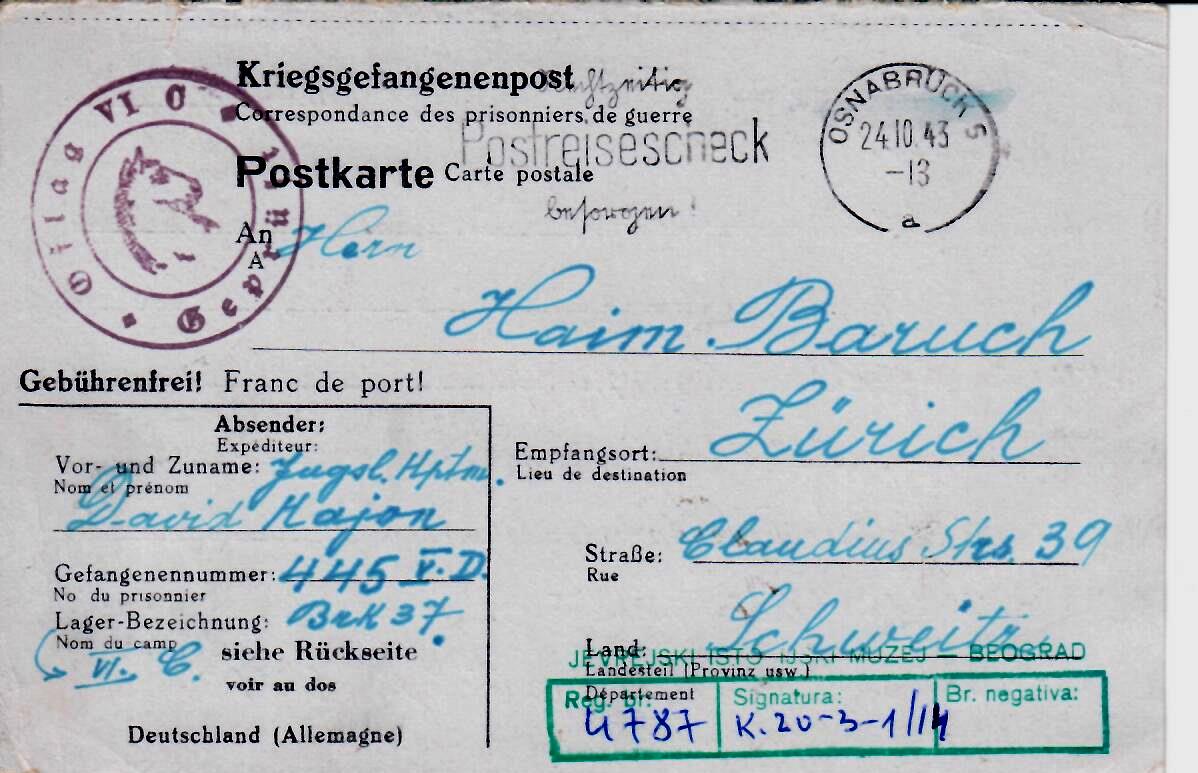 Oflag VI C
Geprüft
Kriegsgefangenenpost
Correspondance des prisonniers de guerre
Postkarte Carte postale
Postreisescheck
besorgen!
OSNABRÜCK 5
24.10.43
-13
a
An Herrn
A
Haim Baruch
Gebührenfrei! Franc de port!
Absender:
Expéditeur:
Vor- und Zuname: Jugsl. Hptm.
Nom et prénom
David Kajon
Gefangenennummer: 445 V.D.
No du prisonnier
Lager-Bezeichnung: Brk 37
Nom du camp
VI. C. siehe Rückseite
voir au dos
Deutschland (Allemagne)
Empfangsort: Zürich
Lieu de destination
Straße: Claudius Strs. 39
Rue
Land: Schweitz
JEVREJSKI ISTORIJSKI MUZEJ - BEOGRAD
Landesteil (Provinz usw.)
Département
Reg. br: Signatura: Br. negativa:
4787 K.20-3-1/14